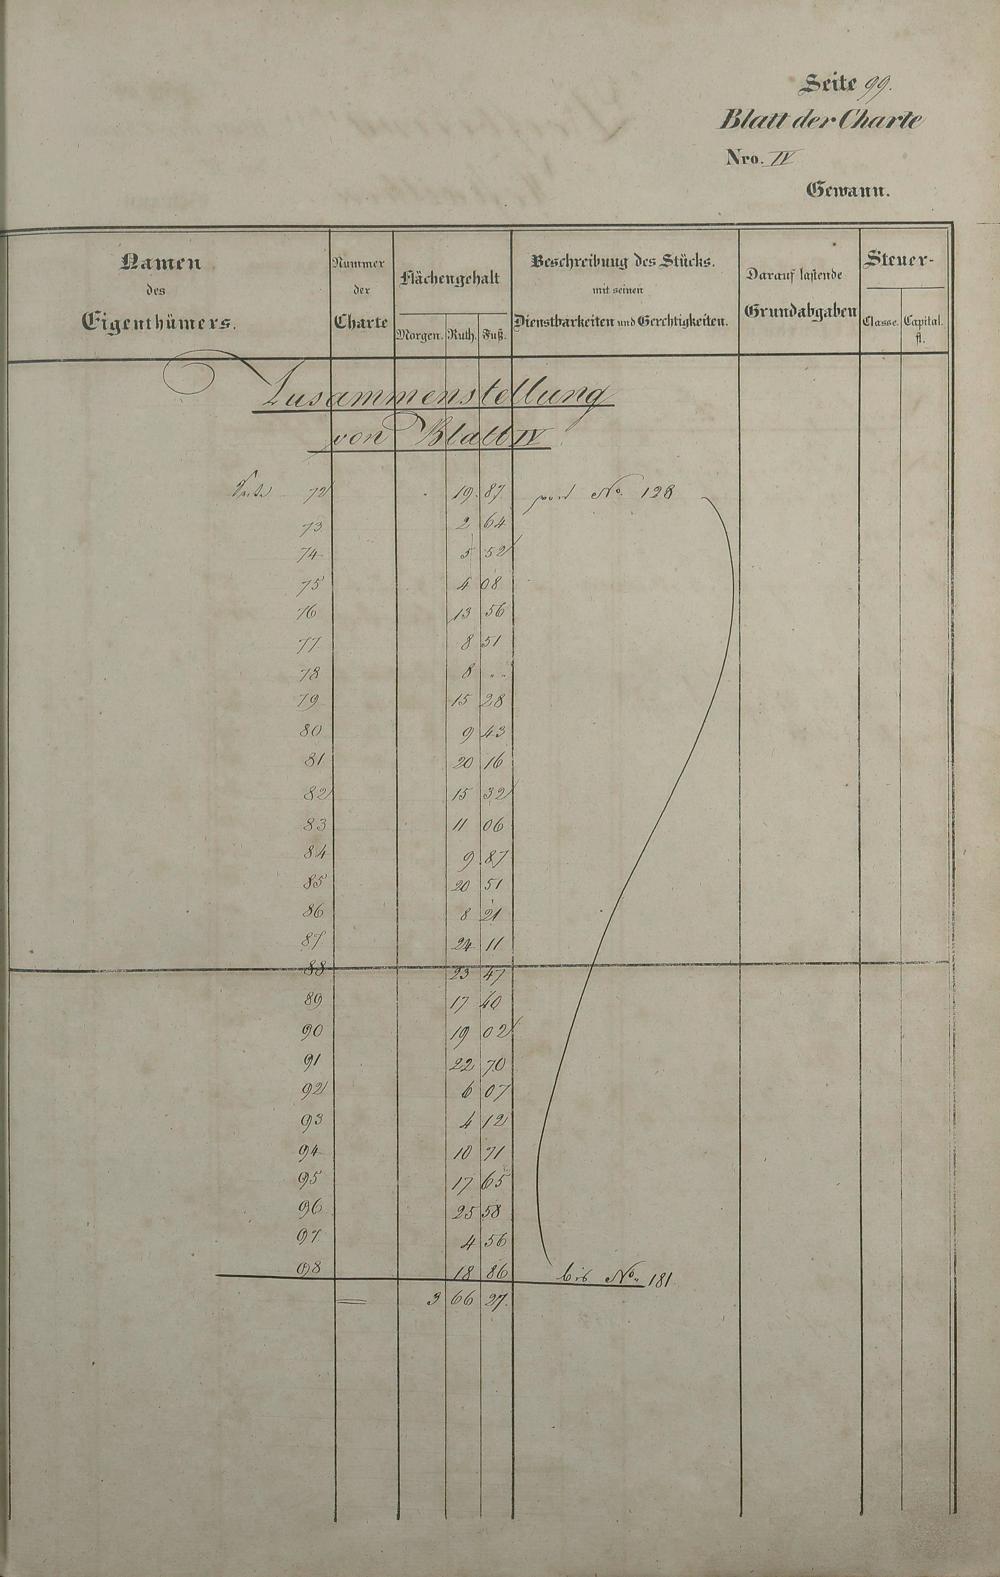 Seite 99.
Blatt der Charte
Nro. IV
Gewann.
Namen des Eigenthümers.
Nummer der Charte
Flächengehalt
Morgen. Ruth. Fuß.
Beschreibung des Stücks. mit seinen Dienstbarkeiten und Gerechtigkeiten.
Darauf lastende Grundabgaben
Steuer-
Classe. Capital. fl.
Zusammenstellung
von Blatt IV
Seite 72 19 87 von No. 128
73 2 64
74 5 52
75 4 08
76 13 56
77 8 51
78 8 ""
79 15 28
80 9 43
81 20 16
82 15 32
83 11 06
84 9 87
85 20 51
86 8 21
87 24 11
88 23 47
89 17 40
90 19 02
91 22 70
92 6 07
93 4 12
94 10 71
95 17 65
96 25 58
97 4 56
98 18 86 bis No. 181
3 66 27.